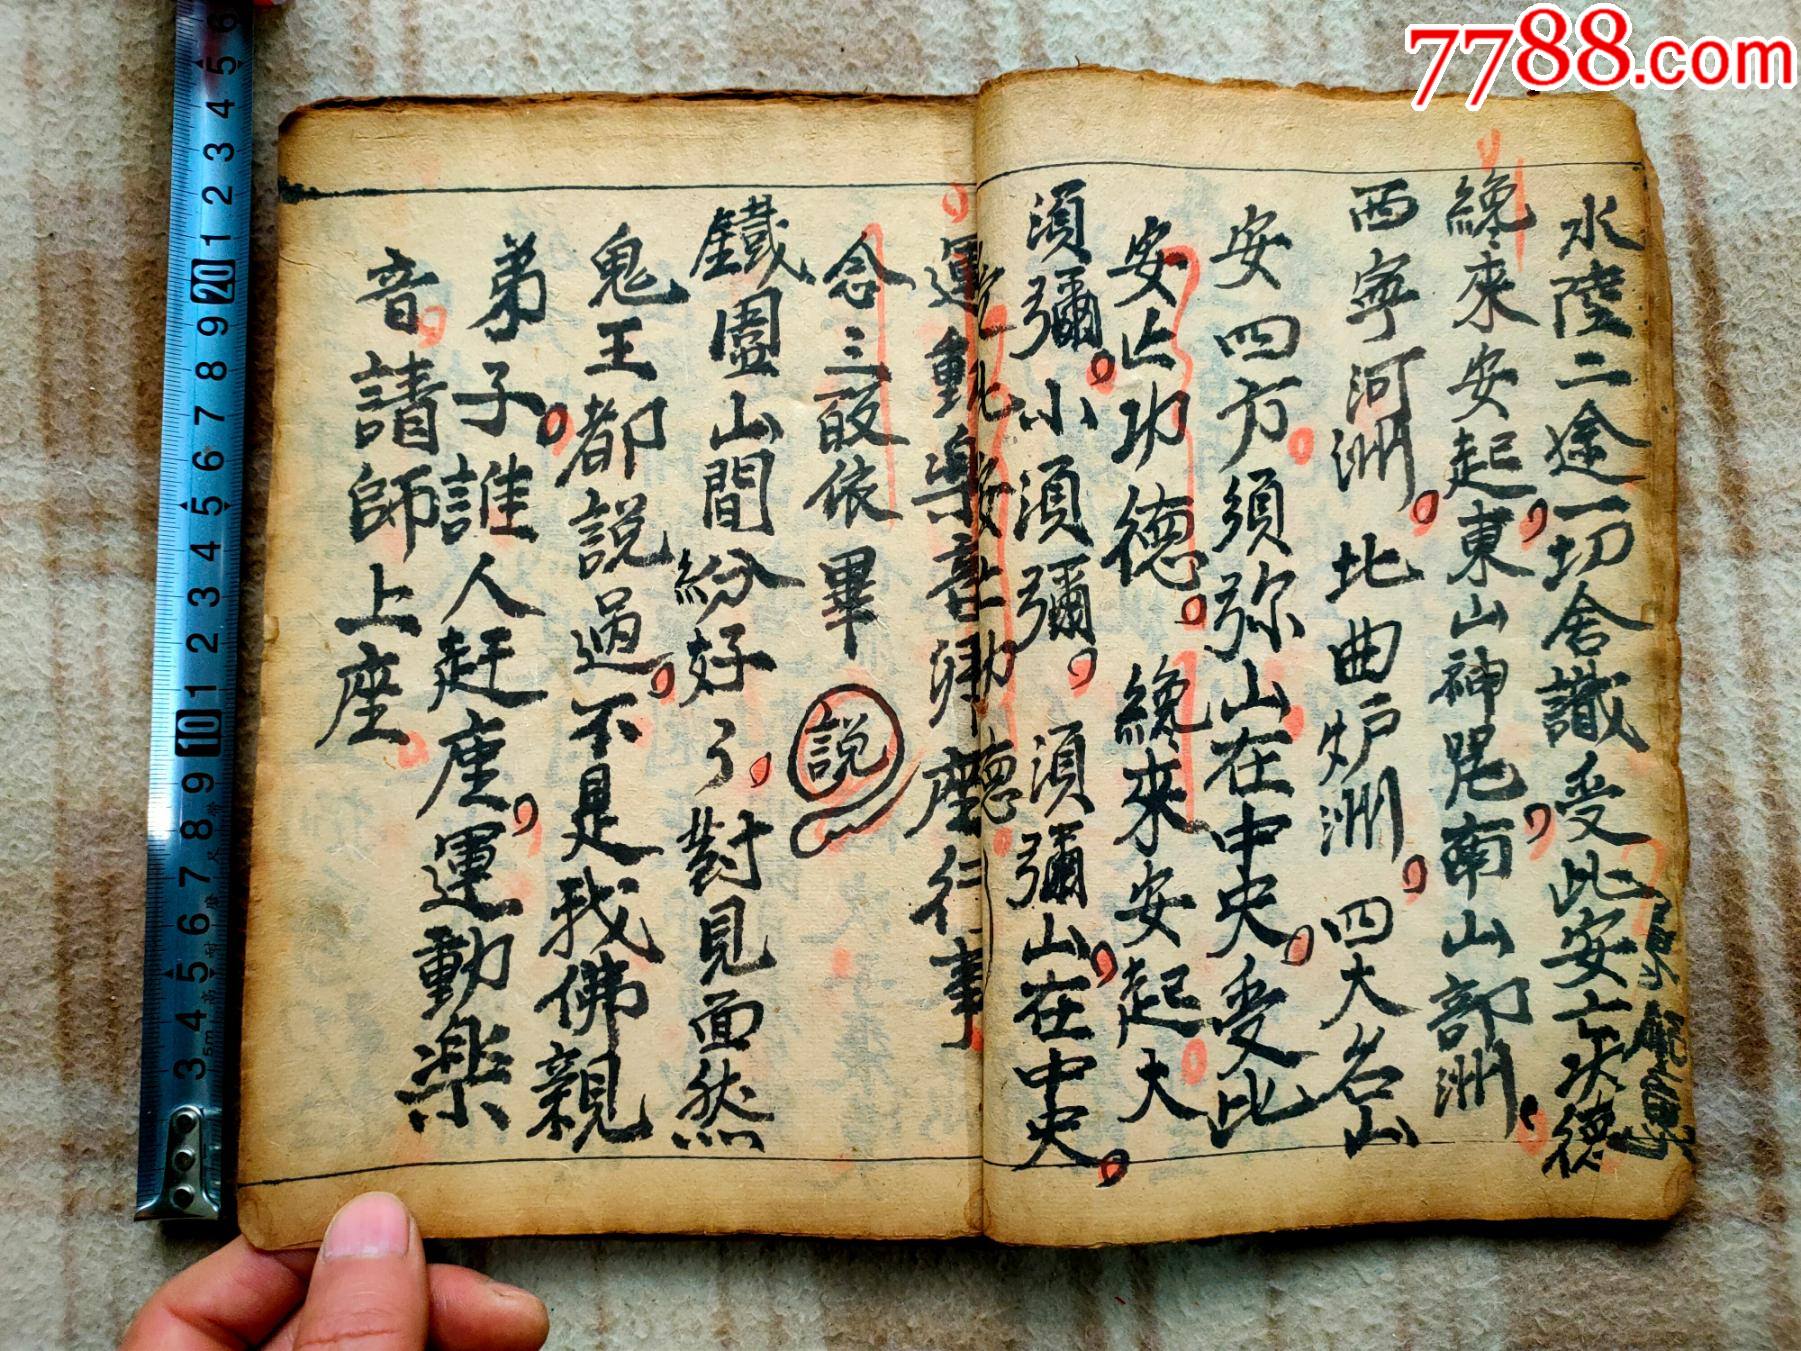 7788.com
水陸二途一切含識受此安亡功德
纔來安起東山神咒南山部洲
西寧河洲北曲炉洲四大名山
安四方須弥山在中央受此
安亡功德纔來安起大
須彌小須彌須彌山在中央
運動樂音歸座行事
念三皈依畢
說
鐵圍山間紛好了對見面然
鬼王都說過不是我佛親
弟子誰人赶座運動樂
音請師上座